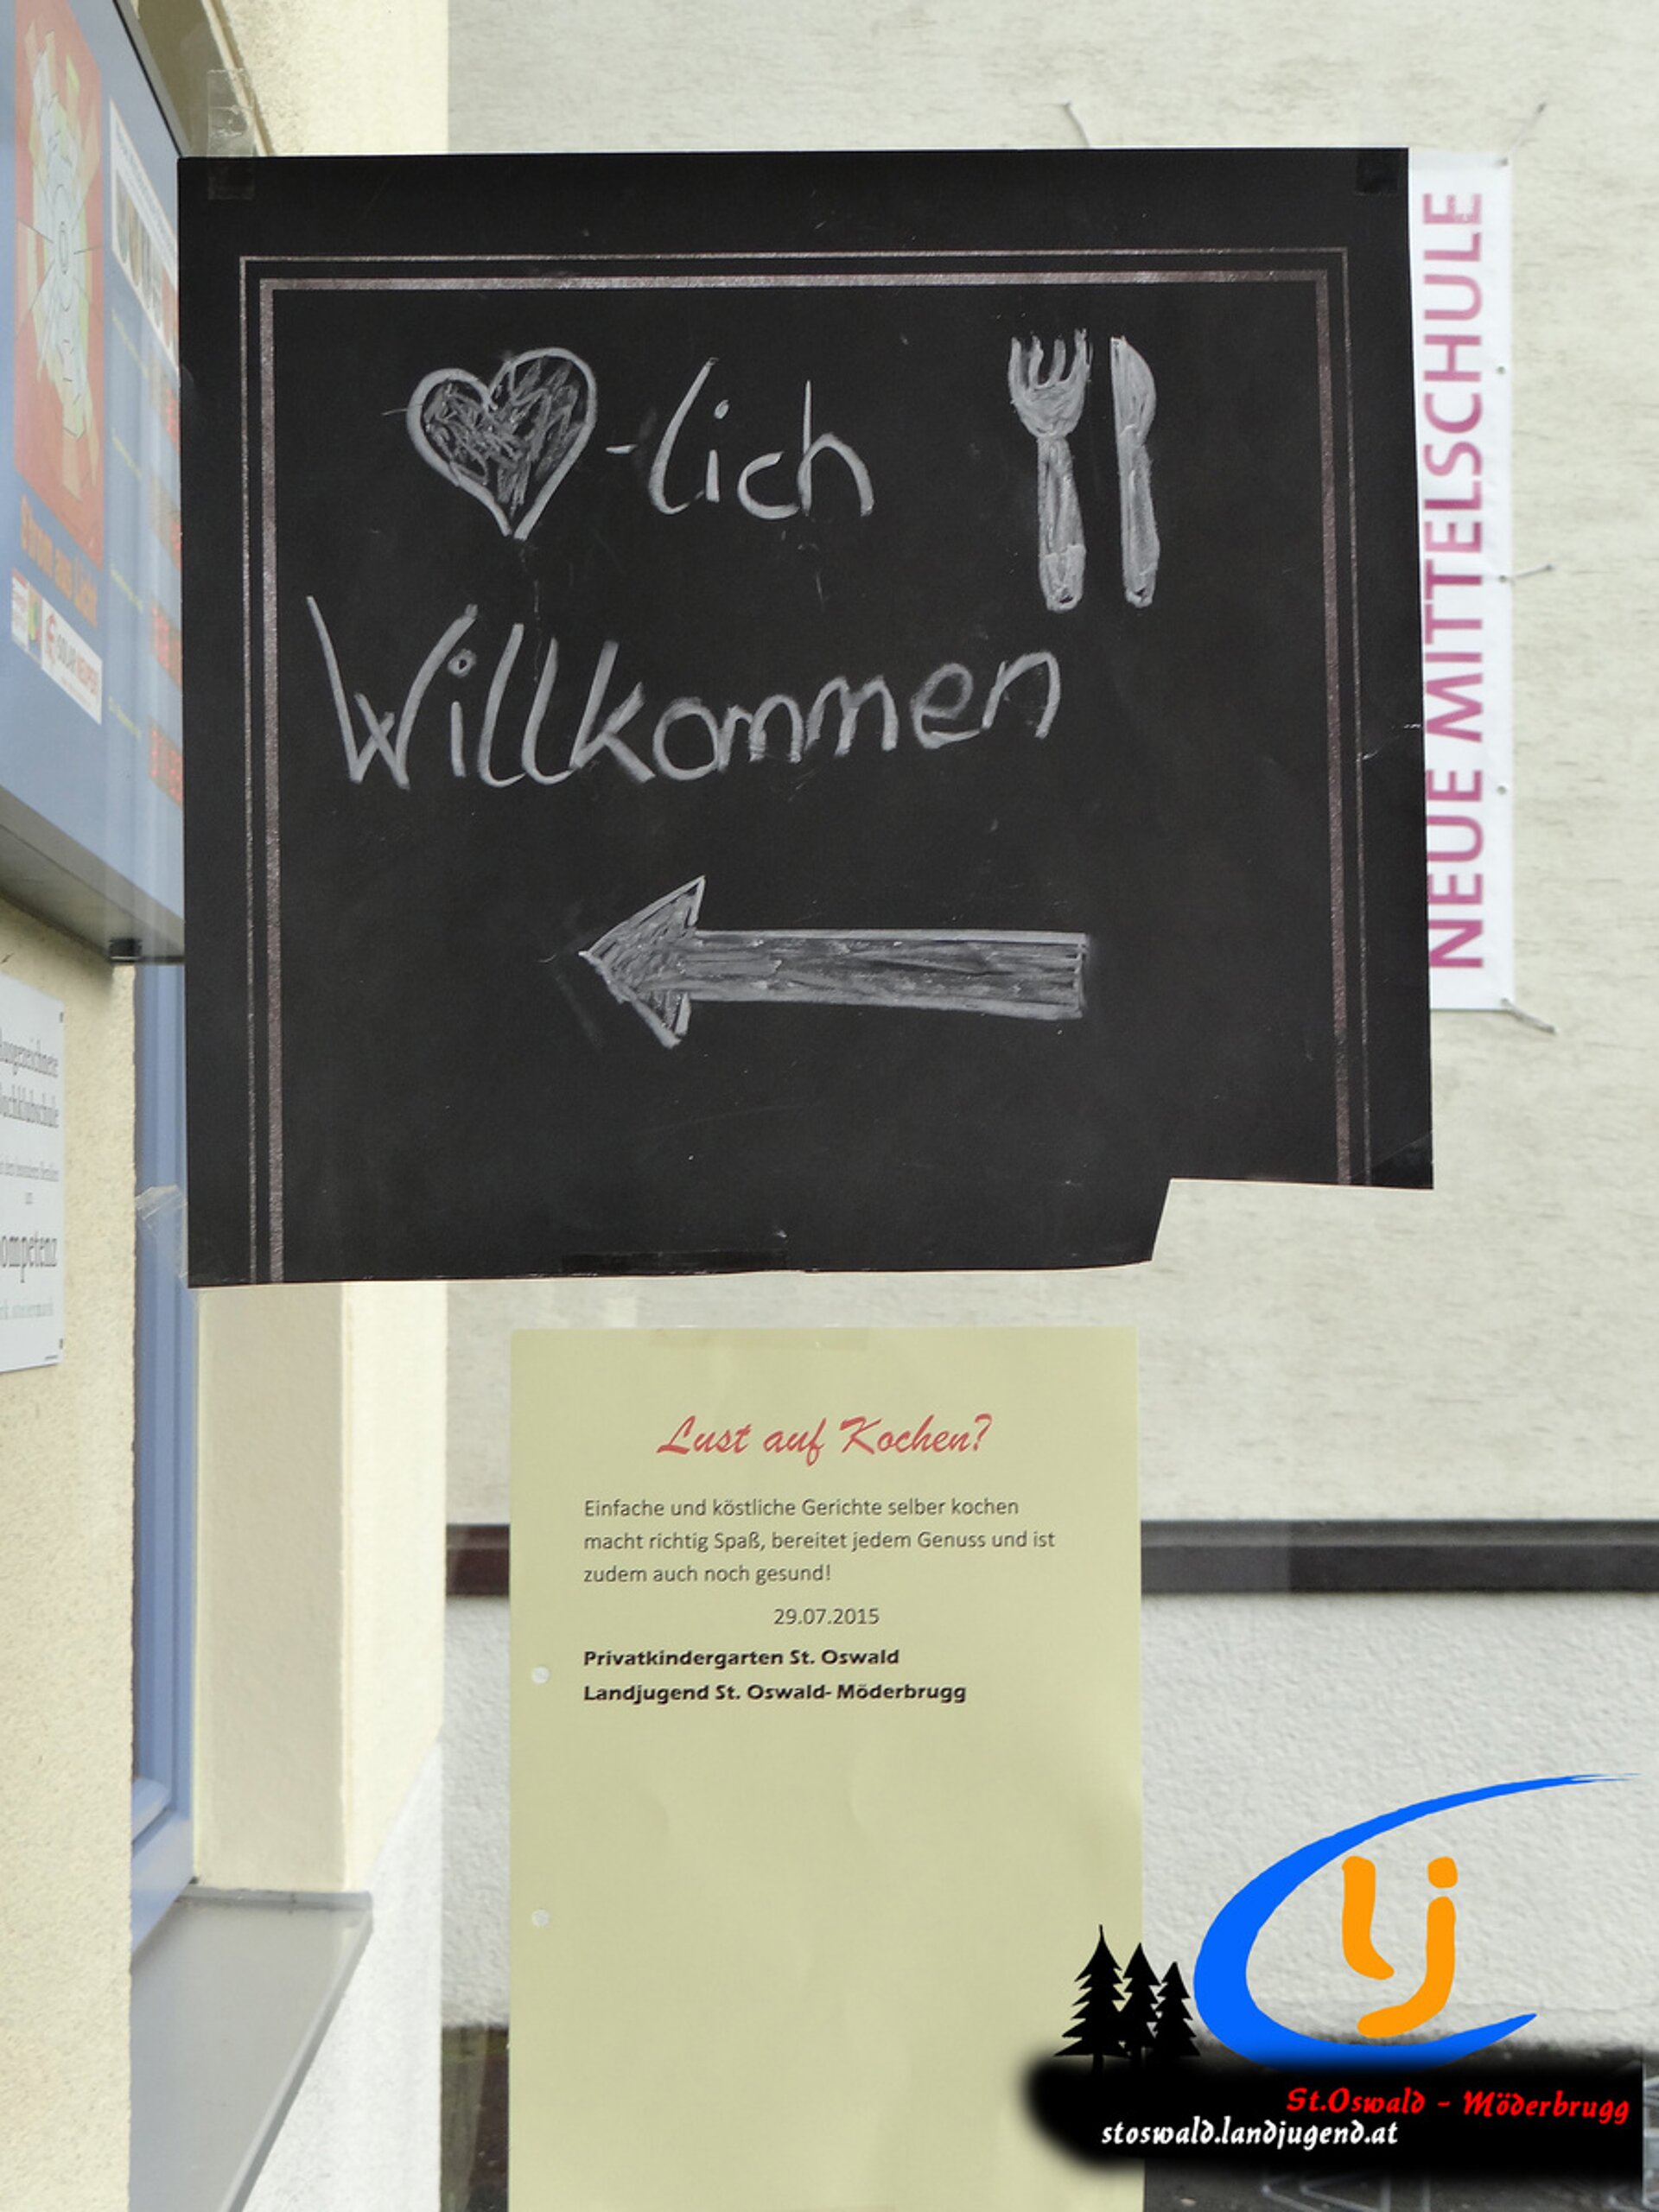 -lich
Willkommen
NEUE MITTELSCHULE
Lust auf Kochen?
Einfache und köstliche Gerichte selber kochen
macht richtig Spaß, bereitet jedem Genuss und ist
zudem auch noch gesund!
29.07.2015
Privatkindergarten St. Oswald
Landjugend St. Oswald- Möderbrugg
lj
St.Oswald - Möderbrugg
stoswald.landjugend.at